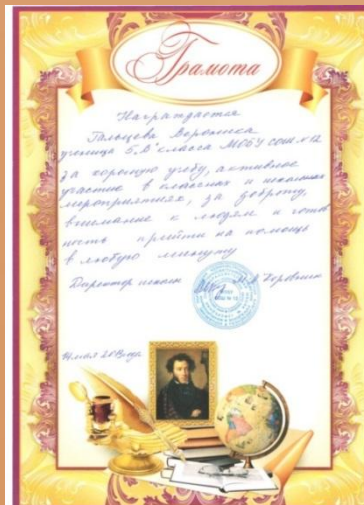 Грамота
Награждается
Гальцева Вероника
ученица 5 „В" класса МОБУ СОШ №12
за хорошую учебу, активное
участие в классных и школьных
мероприятиях, за доброту,
внимание к людям и готов
ность прийти на помощь
в любую минуту
Директор школы